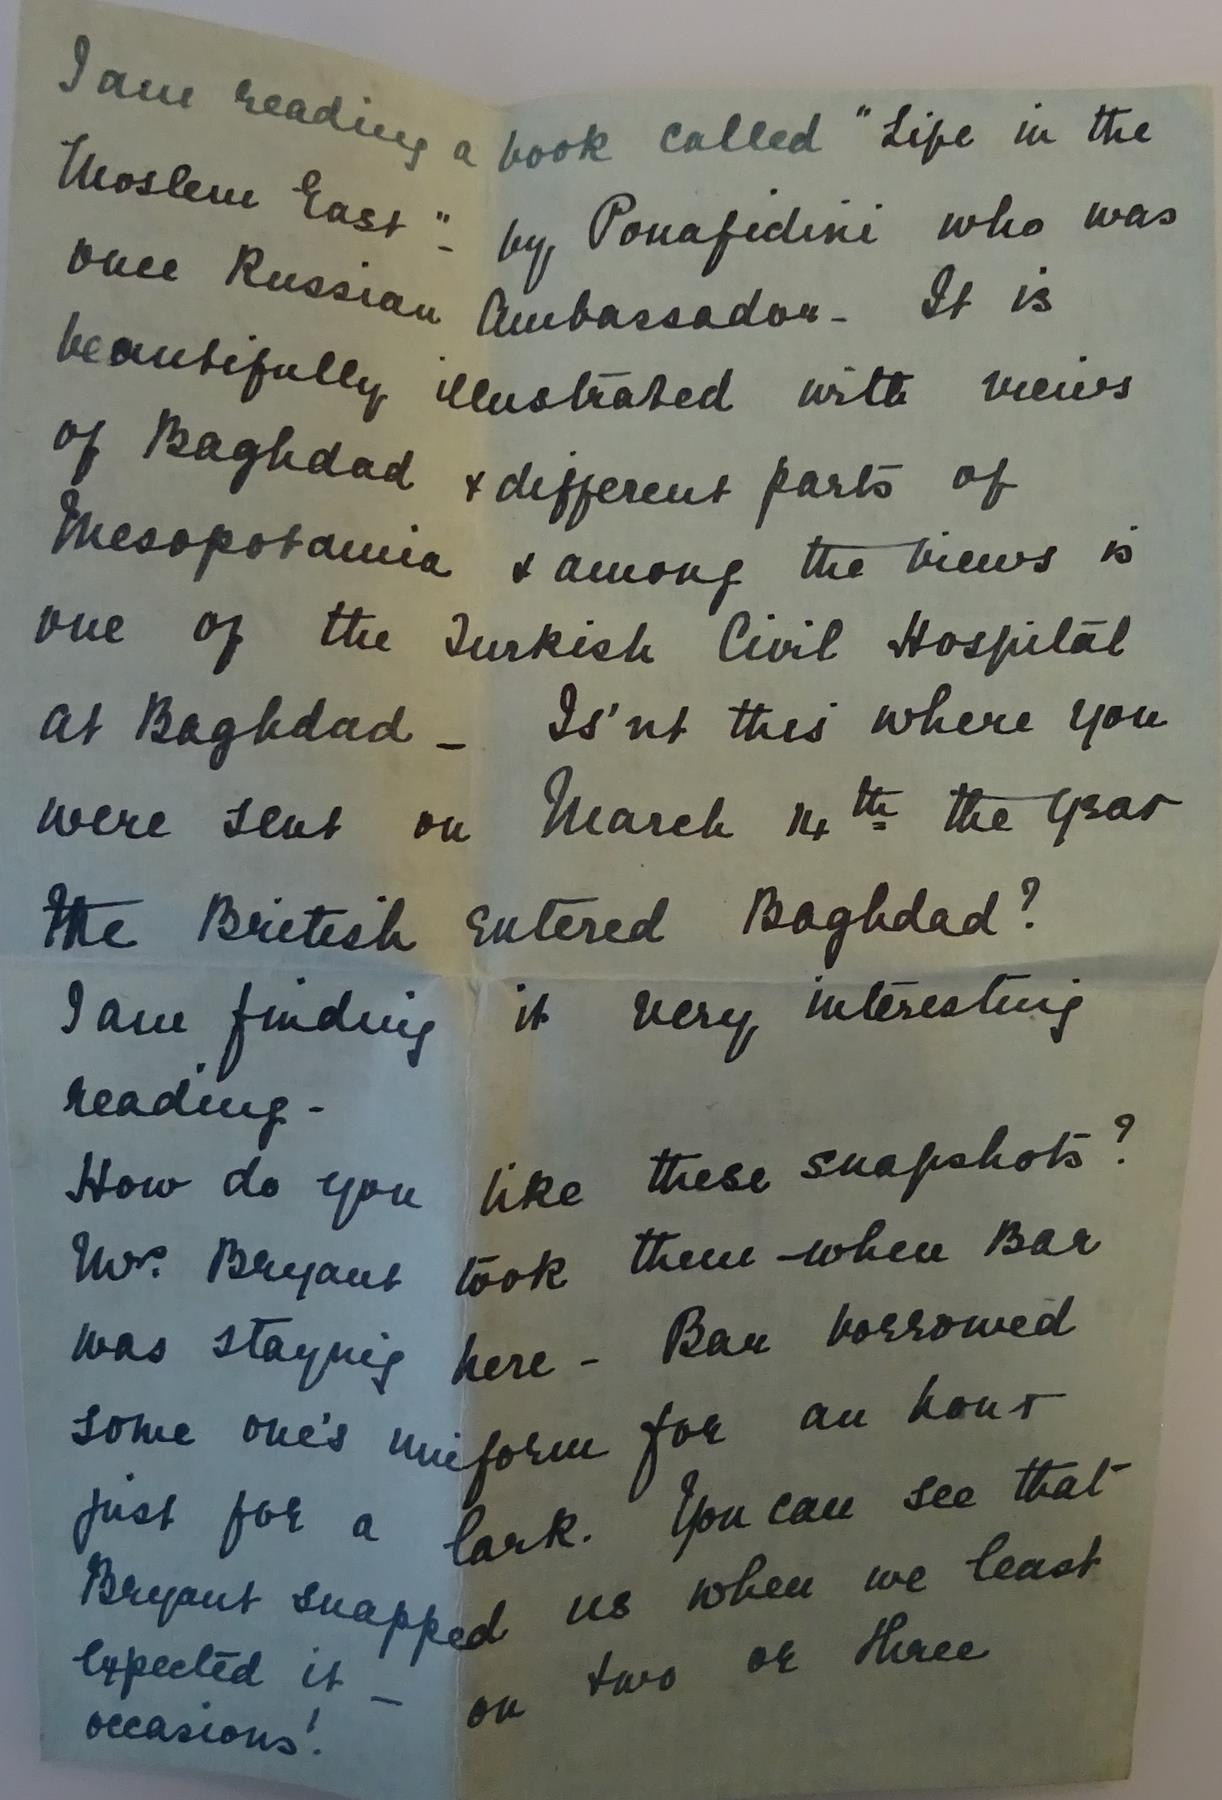 I am reading a book called "Life in the
Moslem East" - by Ponafidini who was
once Russian Ambassador - It is
beautifully illustrated with views
of Baghdad & different parts of
Mesopotamia & among the views is
one of the Turkish Civil Hospital
at Baghdad - Is'nt this where you
were sent on March 14th the year
the British entered Baghdad?
I am finding it very interesting
reading -
How do you like these snapshots?
Mr. Bryant took them when Bar
was staying here - Bar borrowed
some one's uniform for an hour
just for a lark. You can see that
Bryant snapped us when we least
expected it - on two or three
occasions!